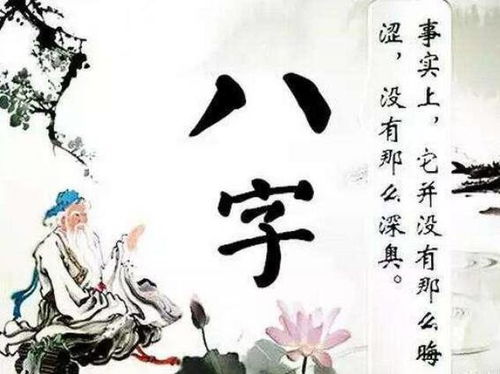 八字
事实上，它并没有那么晦
涩，没有那么深奥。